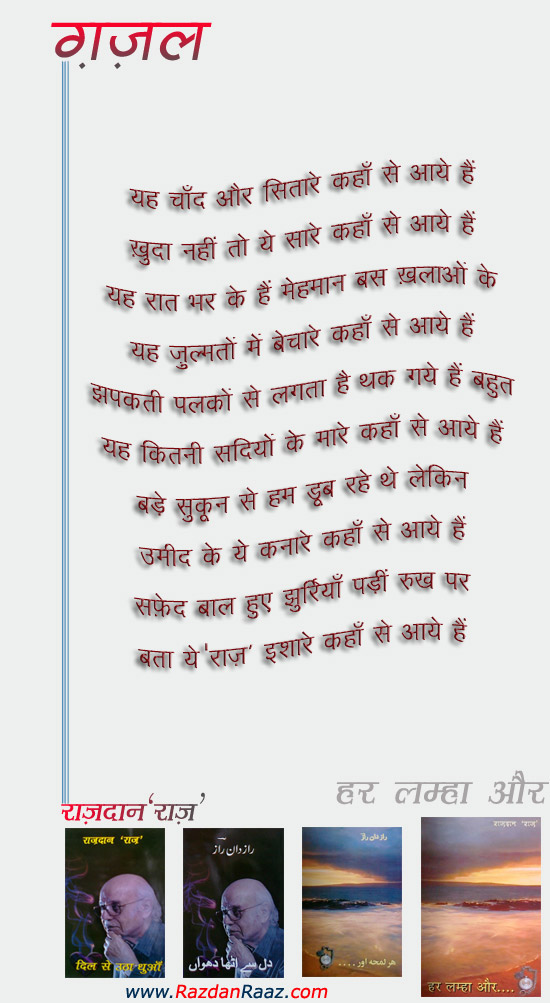 ग़ज़ल
यह चाँद और सितारे कहाँ से आये हैं
ख़ुदा नहीं तो ये सारे कहाँ से आये हैं
यह रात भर के हैं मेहमान बस ख़लाओं के
यह जुल्मतों में बेचारे कहाँ से आये हैं
झपकती पलकों से लगता है थक गये हैं बहुत
यह कितनी सदियों के मारे कहाँ से आये हैं
बड़े सुकून से हम डूब रहे थे लेकिन
उमीद के ये कनारे कहाँ से आये हैं
सफ़ेद बाल हुए झुर्रियाँ पड़ीं रुख पर
बता ये 'राज़' इशारे कहाँ से आये हैं
राज़दान 'राज़'
हर लम्हा और
राज़दान 'राज़'
दिल से उठा धुआँ
راز دان راز
دل سے اٹھا دھواں
راز دان راز
ہر لمحہ اور....
राज़दान 'राज़'
हर लम्हा और....
www.RazdanRaaz.com